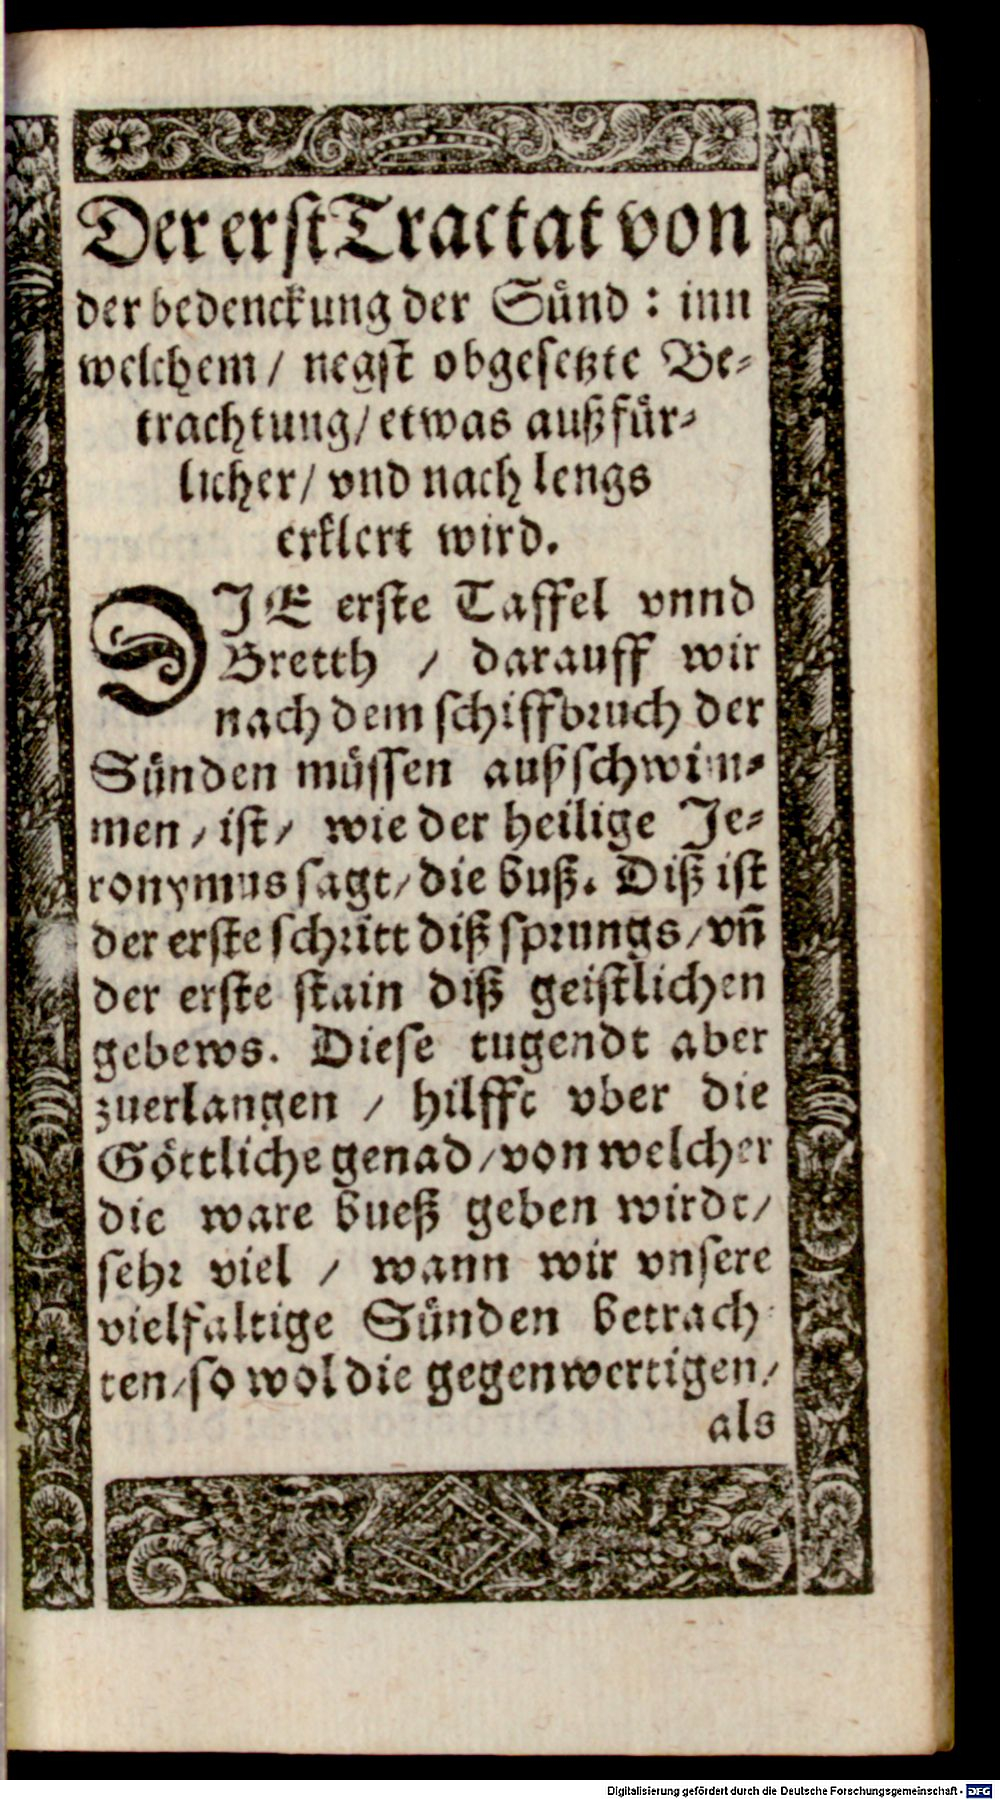 Der erst Tractat von
der bedenckung der Sünd: inn
welchem / negst obgesetzte Be-
trachtung / etwas außfür-
licher / vnd nach lengs
erklert wird.
DIE erste Taffel vnnd
Bretth / darauff wir
nach dem schiffbruch der
Sünden müssen außschwim-
men / ist / wie der heilige Je-
ronymus sagt / die buß. Diß ist
der erste schritt diß sprungs / vñ
der erste stain diß geistlichen
gebews. Diese tugendt aber
zuerlangen / hilfft vber die
Göttliche genad / von welcher
die ware bueß geben wirdt /
sehr viel / wann wir vnsere
vielfaltige Sünden betrach-
ten / so wol die gegenwertigen /
als
Digitalisierung gefördert durch die Deutsche Forschungsgemeinschaft - DFG